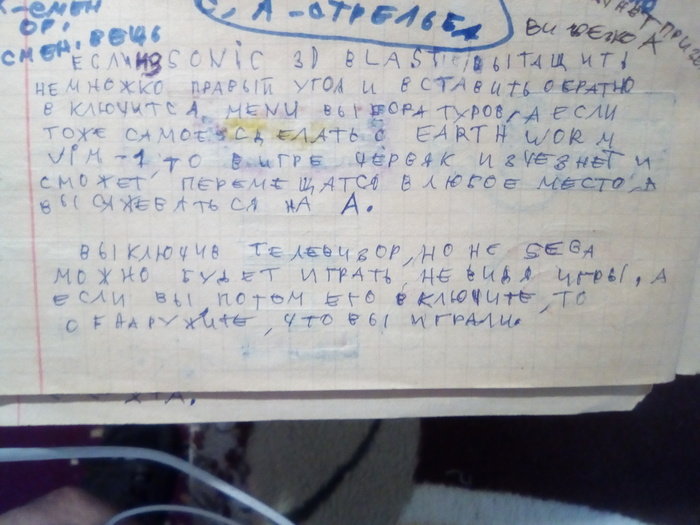 К-СМЕН
ОР,
СМЕН. ВЕЩЬ
С, А - СТРЕЛЬБА
ВИДЕЗНО А
ЕСЛИ ИЗ SONIC 3D BLAST ВЫТАЩИТЬ
НЕМНОЖКО ПРАВЫЙ УГОЛ И ВСТАВИТЬ ОБРАТНО
ВКЛЮЧИТСА MENU ВЫБОРА ТУРОВ, А ЕСЛИ
ТОЖЕ САМОЕ СДЕЛАТЬ С EARTH WORM
JIM-1, ТО В ИГРЕ ЧЕРВАК ИЗЧЕЗНЕТ И
СМОЖЕТ ПЕРЕМЕЩАТСА В ЛЮБОЕ МЕСТО, А
ВЫСАЖЕВАТЬСЯ НА А.
ВЫКЛЮЧИВ ТЕЛЕВИЗОР, НО НЕ SEGA
МОЖНО БУДЕТ ИГРАТЬ, НЕ ВИДЯ ИГРЫ, А
ЕСЛИ ВЫ ПОТОМ ЕГО ВКЛЮЧИТЕ, ТО
ОБНАРУЖИТЕ, ЧТО ВЫ ИГРАЛИ.